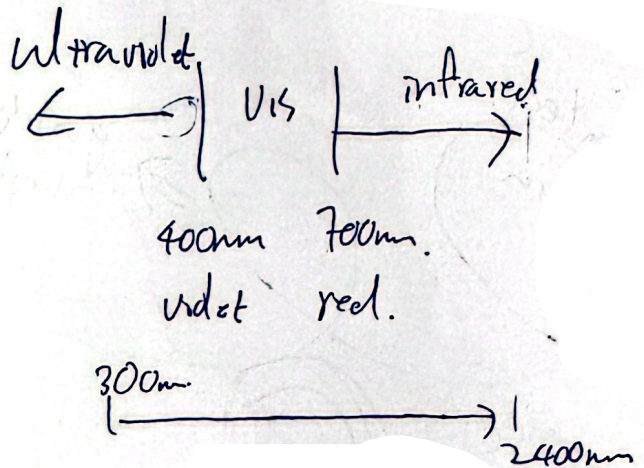 ultraviolet
VIS
infrared
400nm 700nm.
violet red.
300nm.
2400nm